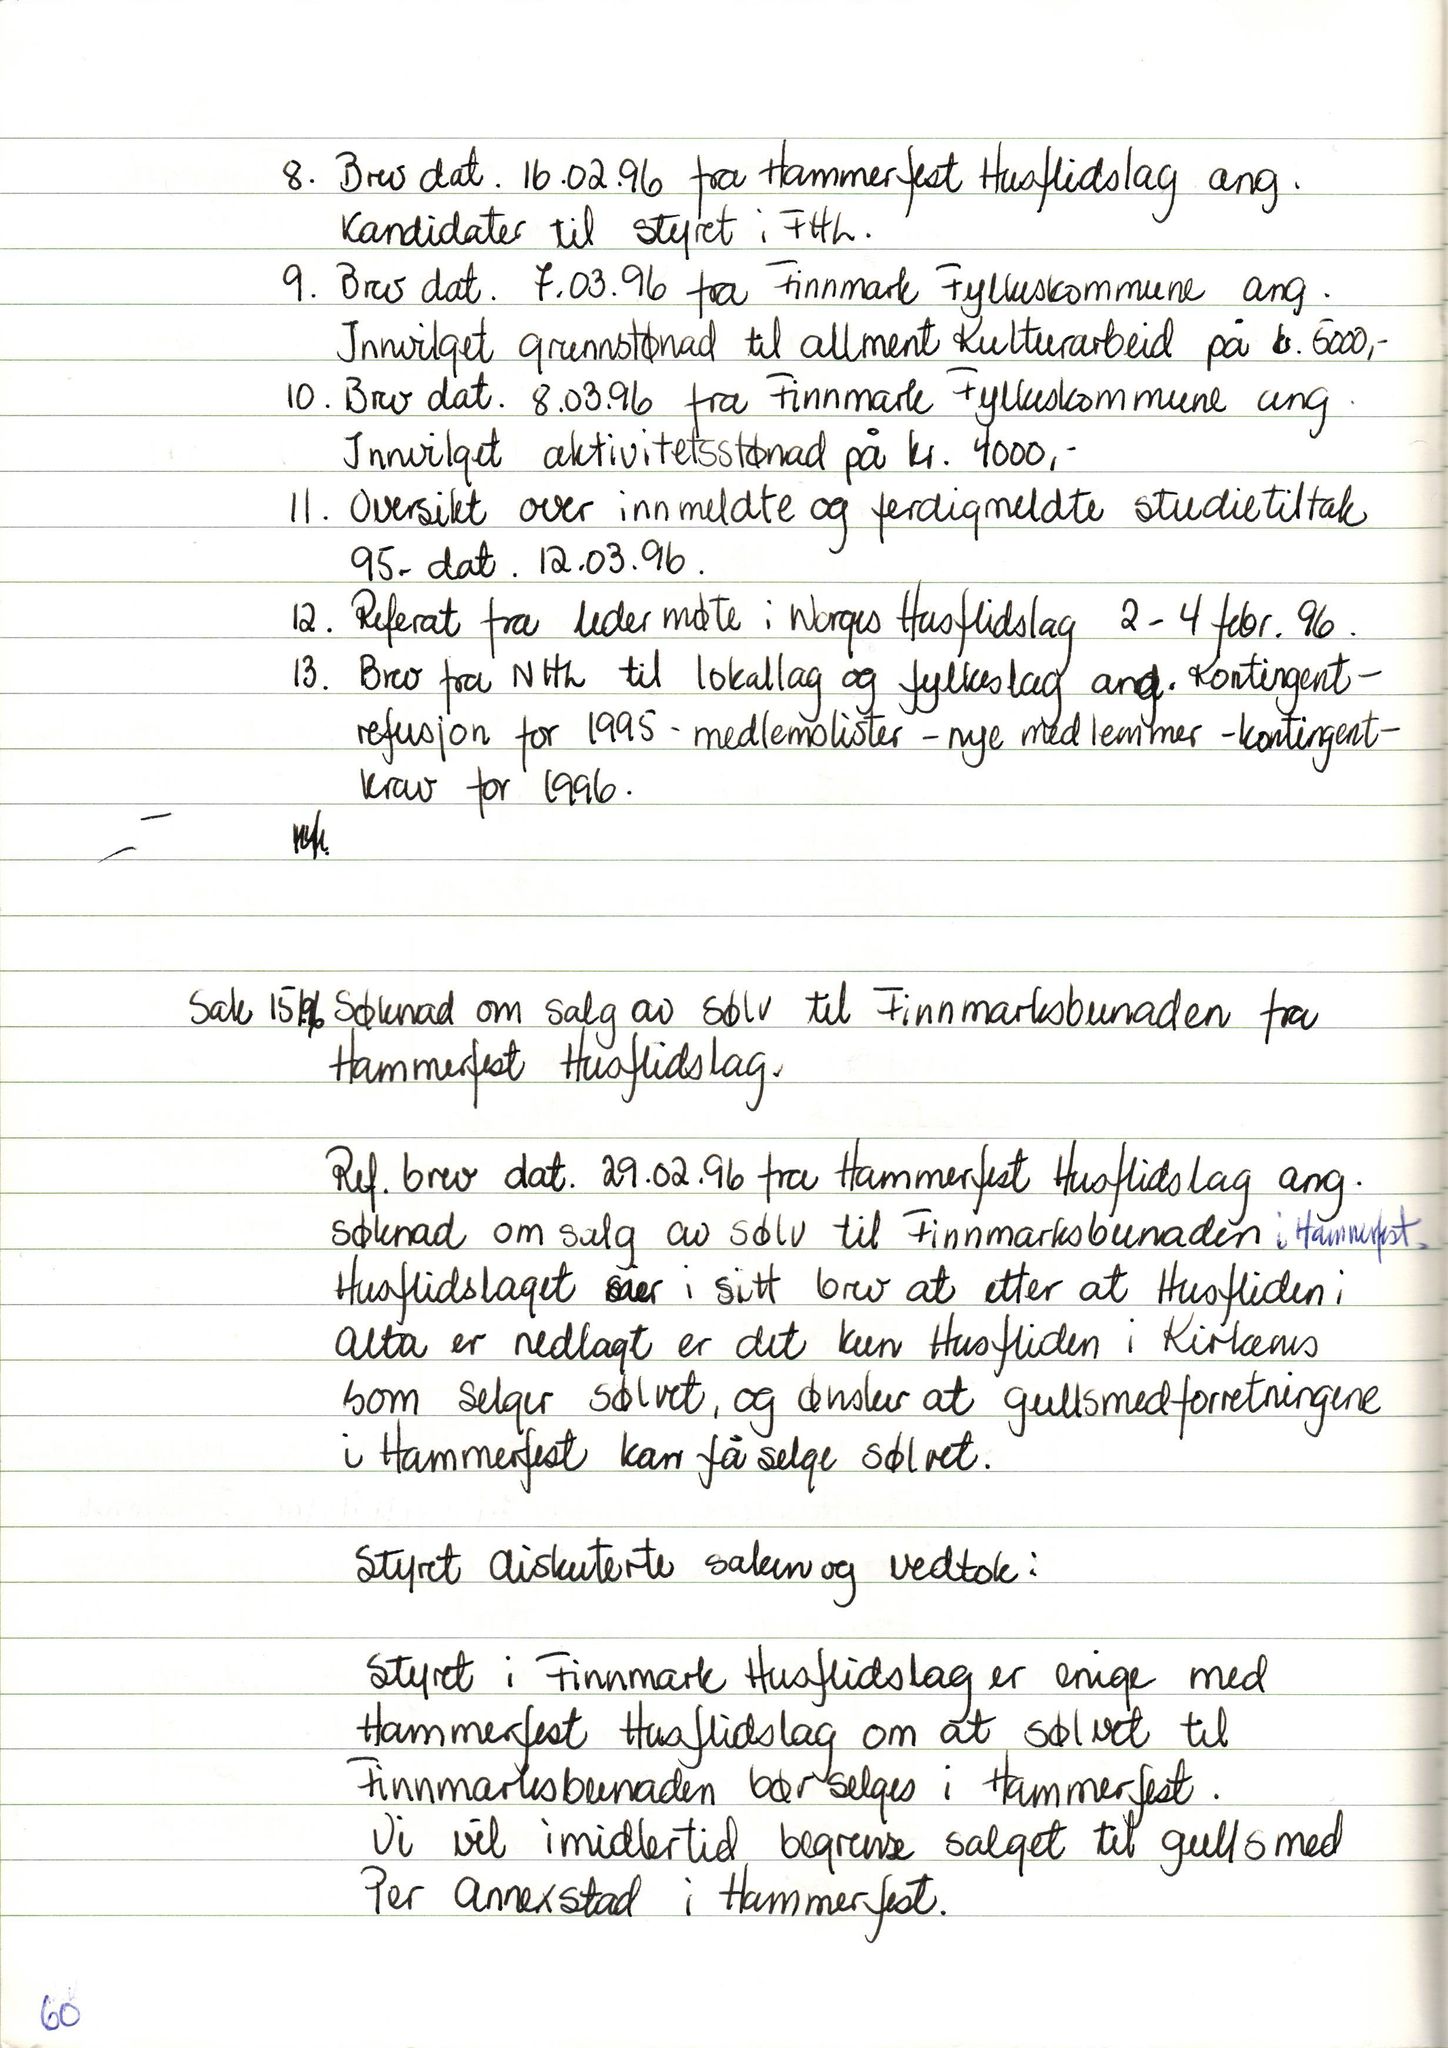 8. Brev dat. 16.02.96 fra Hammerfest Husflidslag ang.
Kandidater til styret i FHL.
9. Brev dat. 7.03.96 fra Finnmark Fylkeskommune ang.
Innvilget grunnstønad til allment Kulturarbeid på kr. 5000,-
10. Brev dat. 8.03.96 fra Finnmark Fylkeskommune ang.
Innvilget aktivitetsstønad på kr. 4000,-
11. Oversikt over innmeldte og ferdigmeldte studietiltak
95- dat. 12.03.96.
12. Referat fra ledermøte i Norges Husflidslag 2-4 febr. 96.
13. Brev fra NHL til lokallag og fylkeslag ang. Kontingent-
refusjon for 1995 - medlemslister - nye medlemmer - kontingent-
krav for 1996.
Sak 15/96 Søknad om salg av sølv til Finnmarksbunaden fra
Hammerfest Husflidslag.
Ref. brev dat. 29.02.96 fra Hammerfest Husflidslag ang.
søknad om salg av sølv til Finnmarksbunaden i Hammerfest.
Husflidslaget sier i sitt brev at etter at Husfliden i
Alta er nedlagt er det kun Husfliden i Kirkenes
som selger sølvet, og ønsker at gullsmedforretningene
i Hammerfest kan få selge sølvet.
Styret diskuterte saken og vedtok:
Styret i Finnmark Husflidslag er enige med
Hammerfest Husflidslag om at sølvet til
Finnmarksbunaden bør selges i Hammerfest.
Vi vil imidlertid begrense salget til gullsmed
Per i Hammerfest.
60